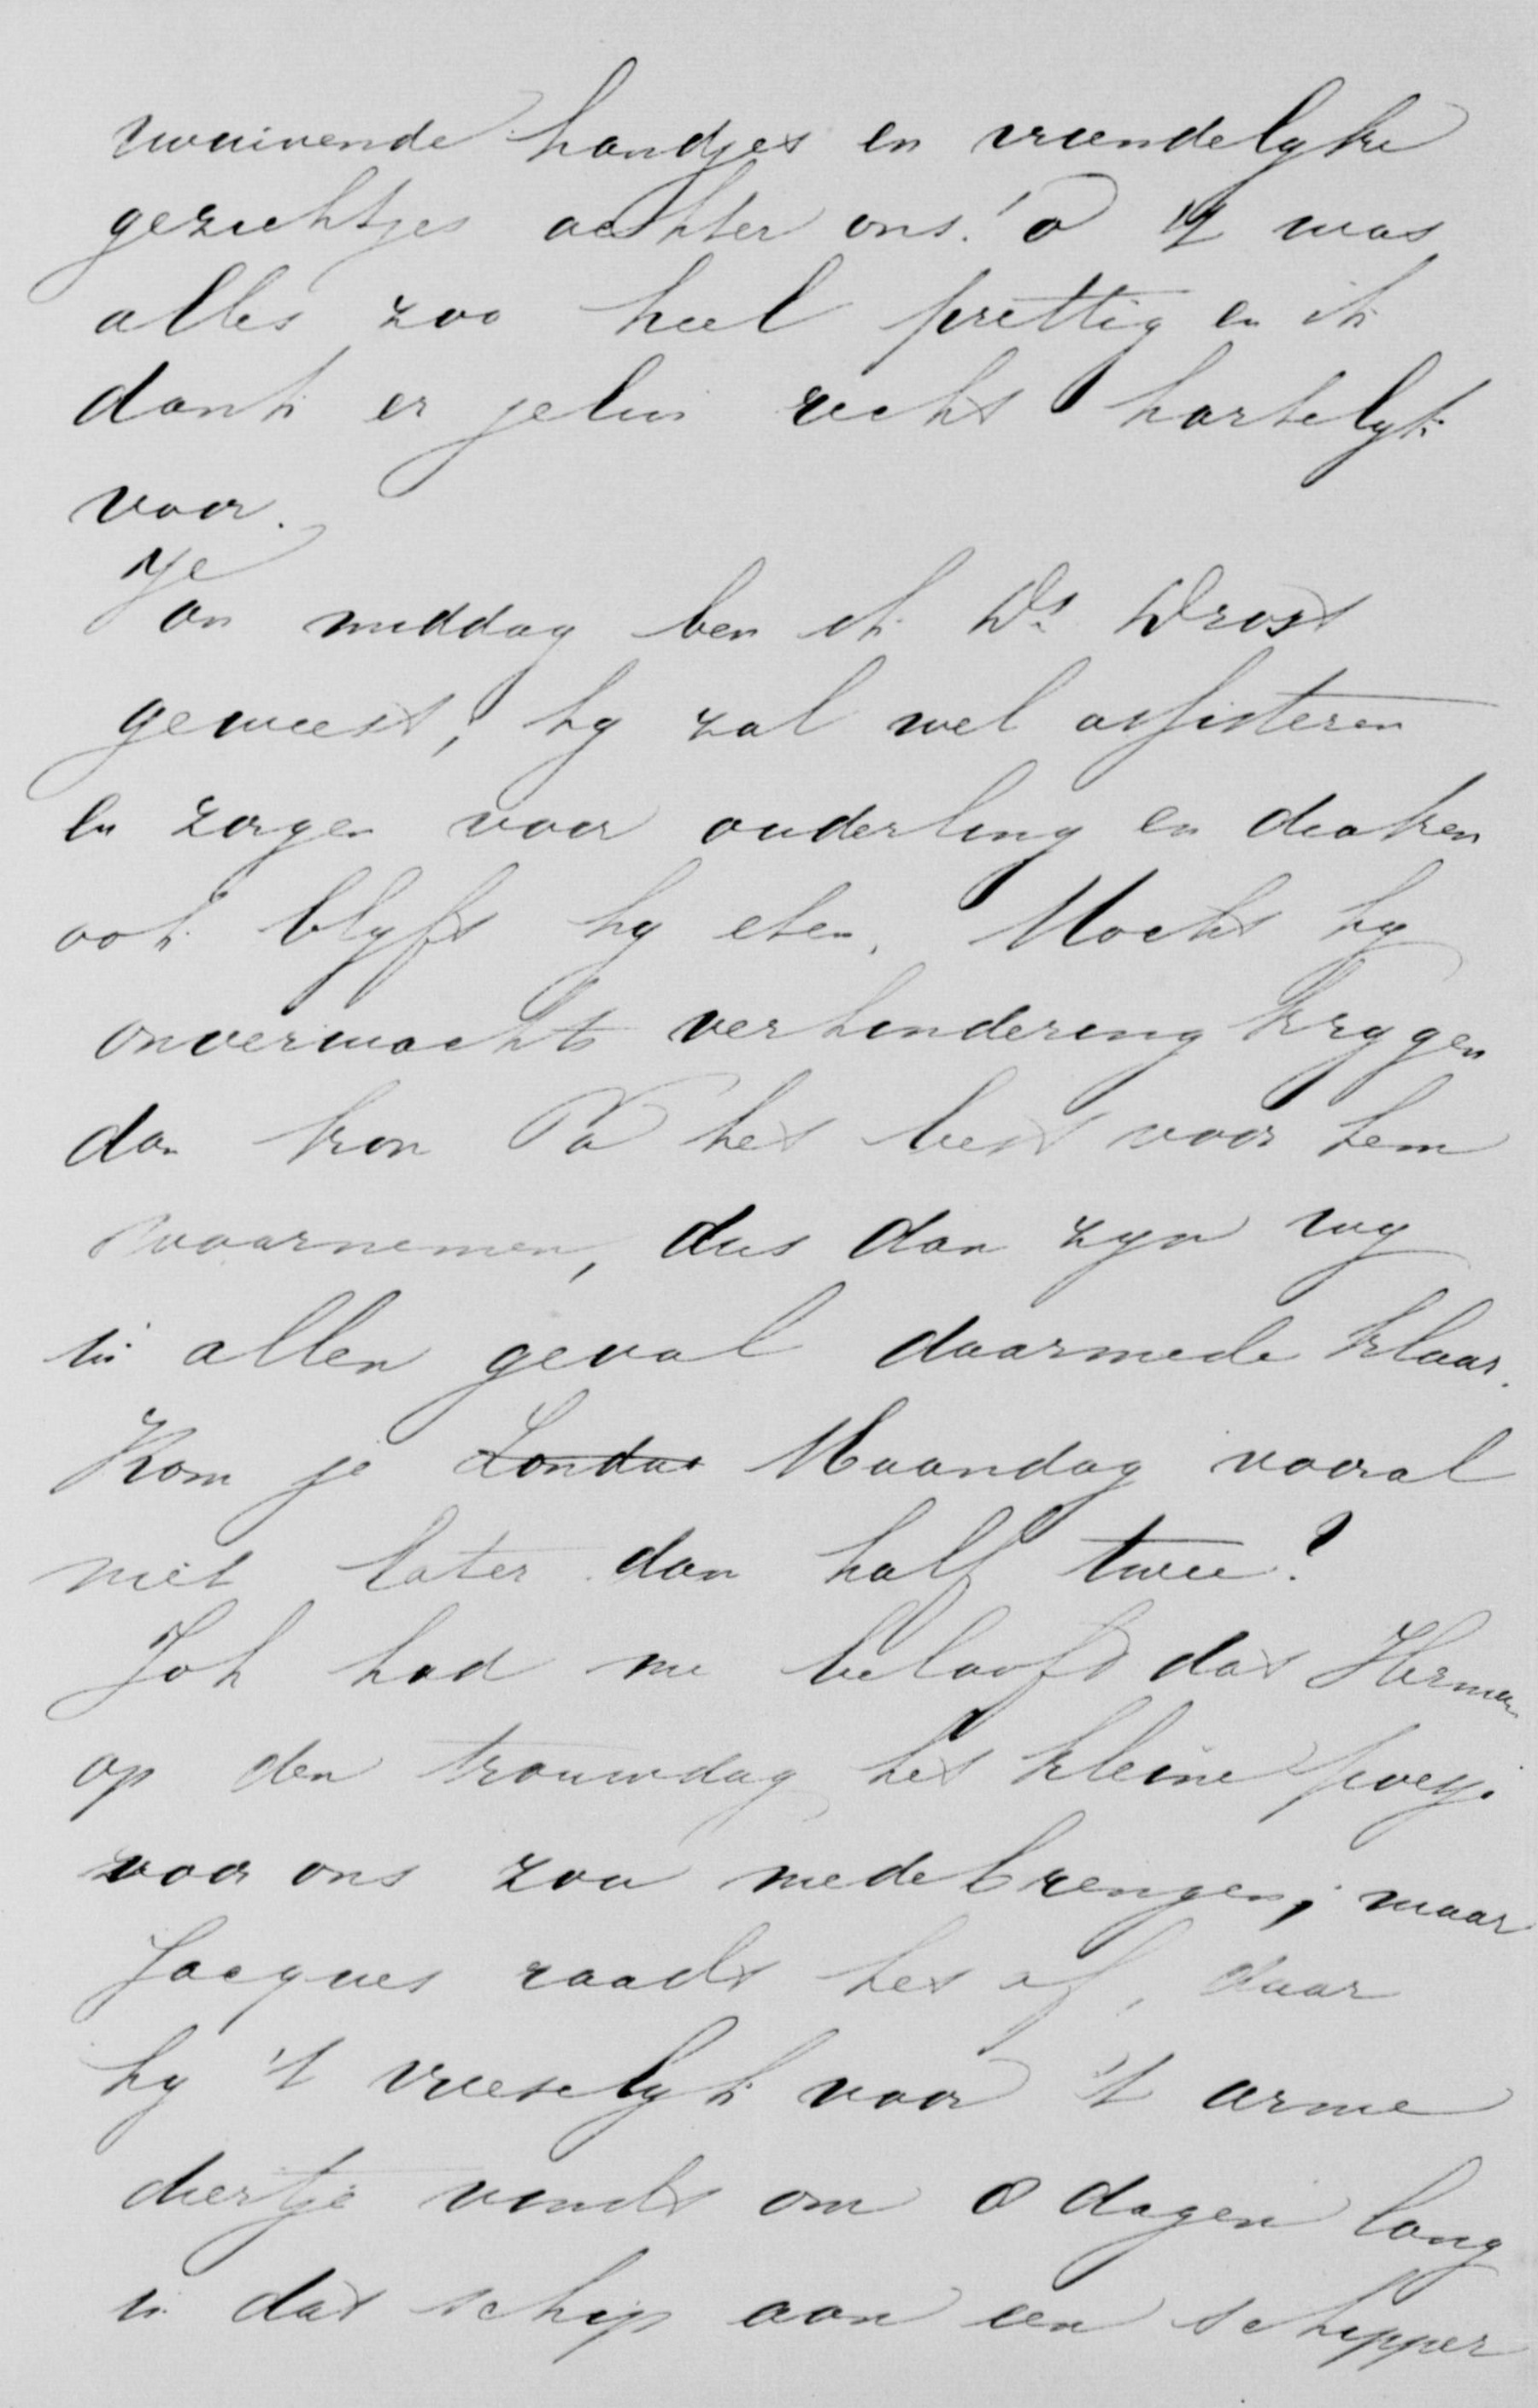 wuivende handjes en vriendelyke
gezichtjes achter ons! o 't was
alles zoo heel prettig en ik
dank er jelui recht hartelyk
voor.
Van middag ben ik Ds Drost
geweest, hy zal wel assisteren
en zorgen voor ouderling en diaken
ook blyft hy eten. Mocht hy
onverwacht verhindering krygen
dan kon Pa het best voor hem
waarnemen, dus dan zyn wy
in allen geval daarmede klaar.
Kom je Maandag vooral
niet later dan half twee?
Joh had me beloofd dat Herman
op den trouwdag het kleine poesje
voor ons zou medebrengen; maar
Jacques raadt het af, daar
hy 't vreeselyk voor 't arme
diertje vindt om 8 dagen lang
in dat schip aan een schipper